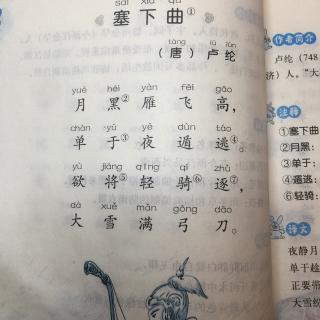 sài xià qǔ
塞下曲①
táng lú lún
（唐）卢纶
yuè hēi yàn fēi gāo
月黑②雁飞高，
chán yú yè dùn táo
单于③夜遁逃④。
yù jiāng qīng qí zhú
欲将轻骑⑤逐⑦，
dà xuě mǎn gōng dāo
大雪满弓刀。
作者简介
卢纶（748
济）人。“大
注释
①塞下曲
②月黑：
③单于：
④遁逃：
⑤轻骑：
译文
夜静月
单于趁
正要带
大雪纷